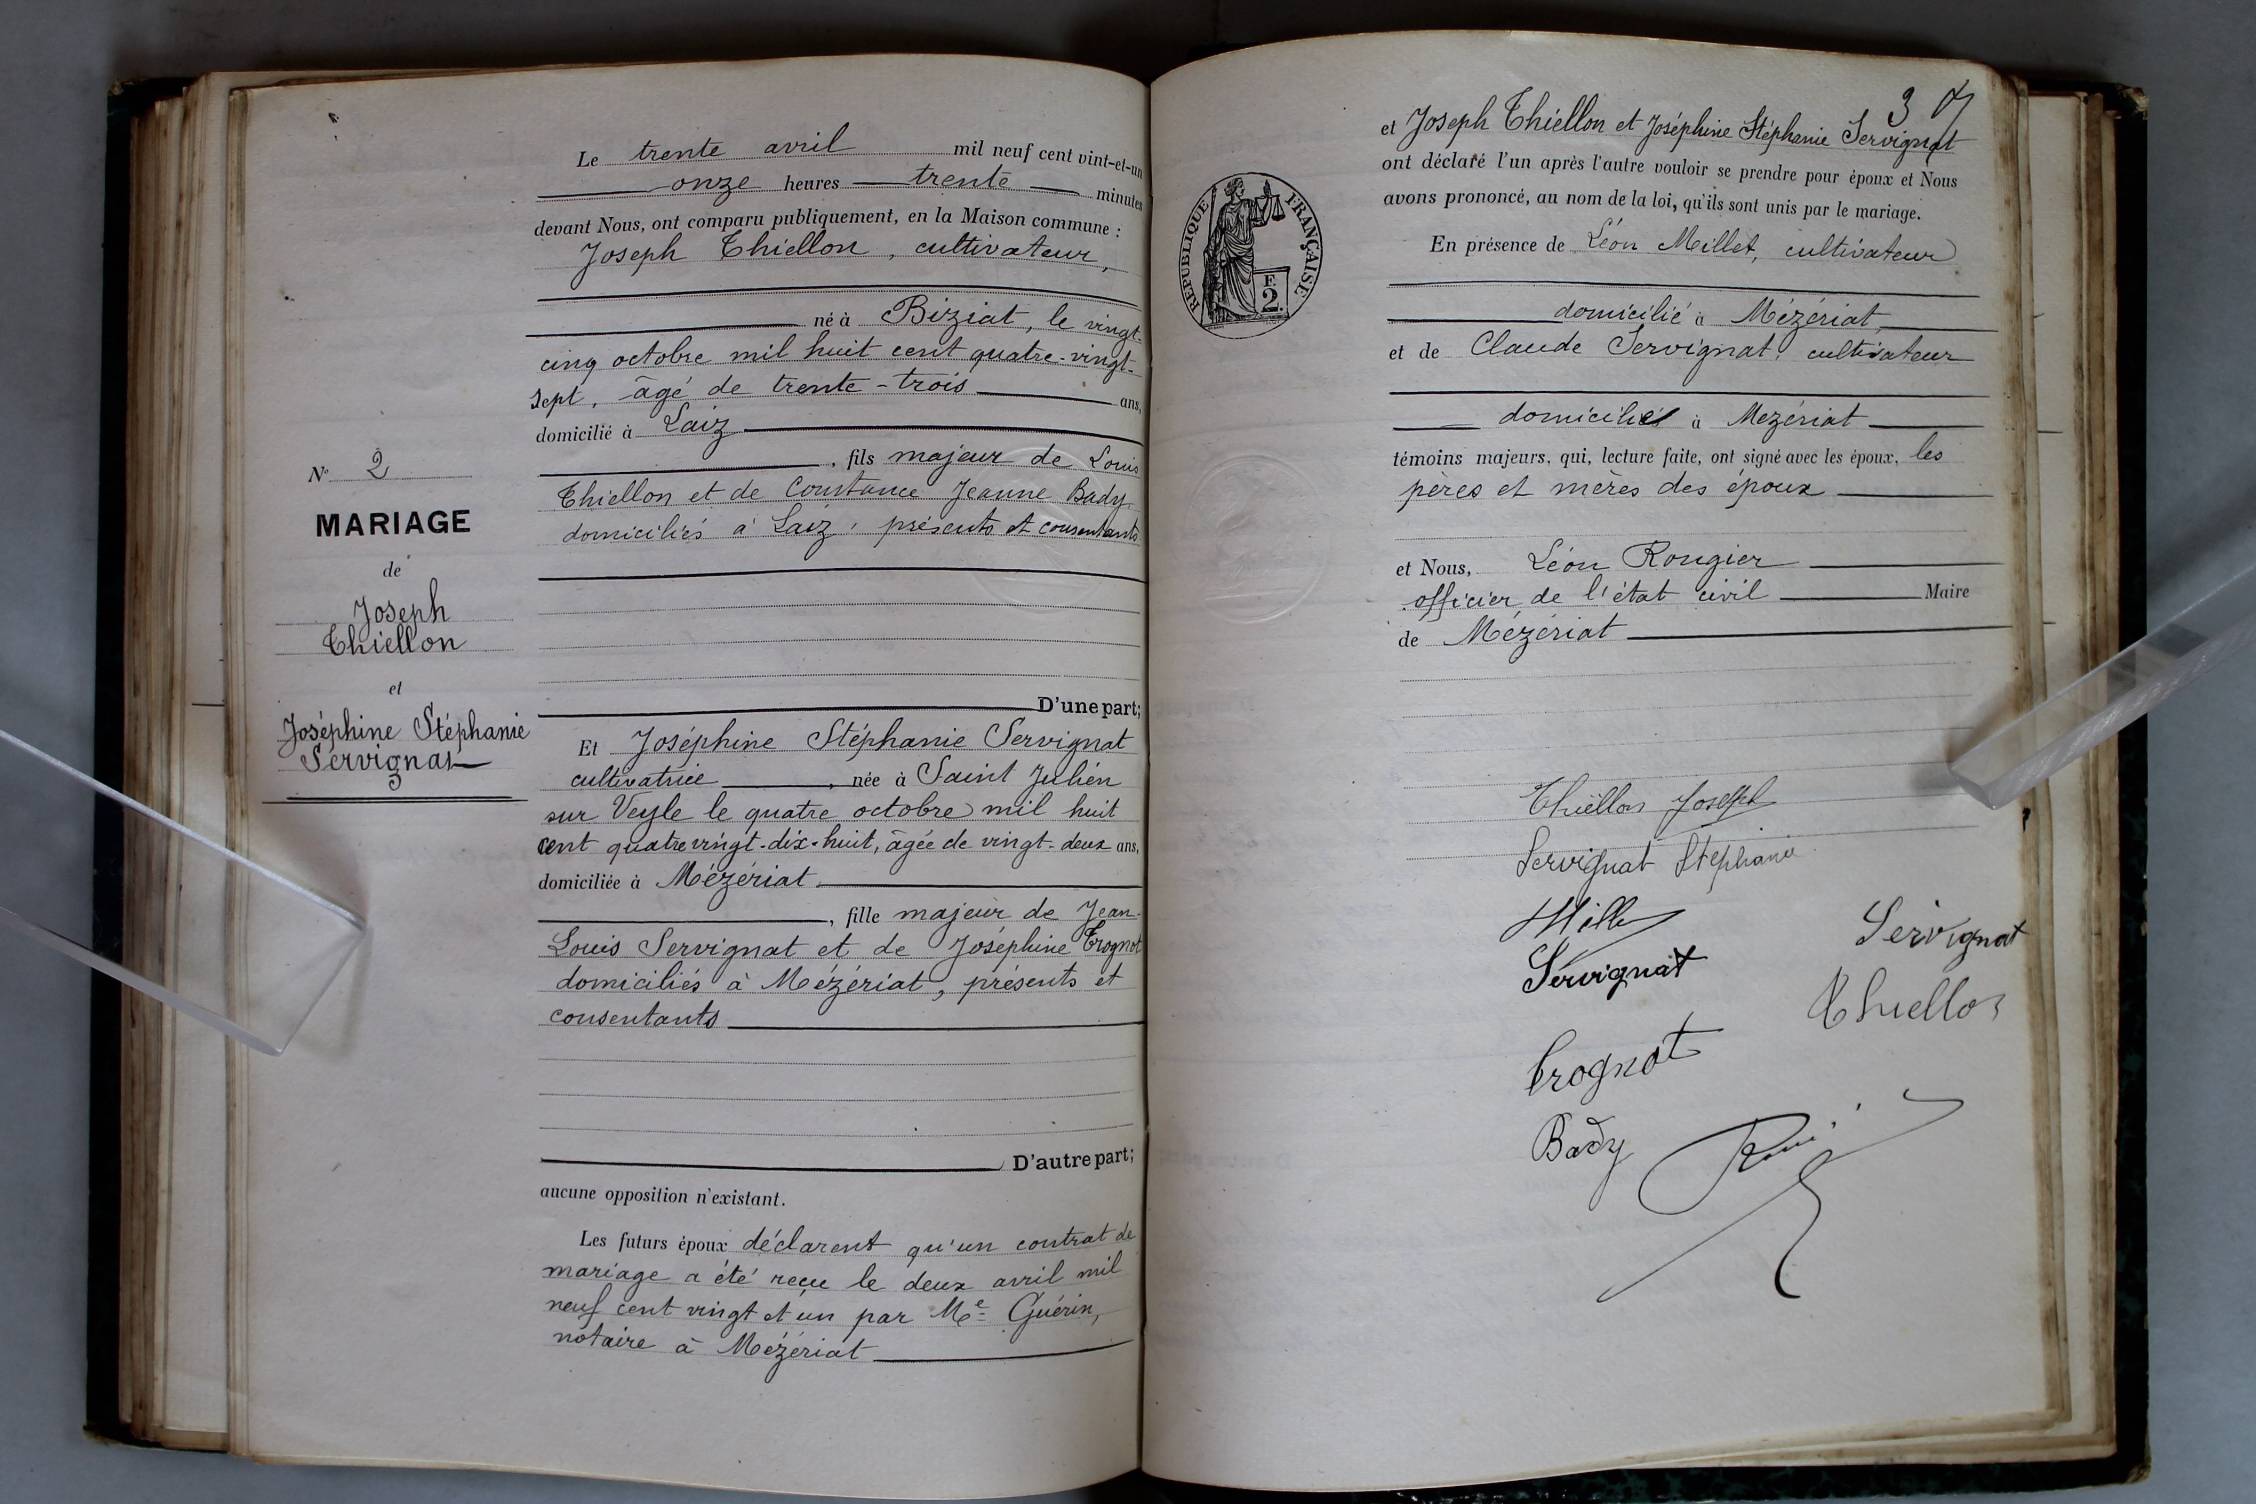 Le trente avril mil neuf cent vint-et-un
onze heures trente minutes
devant Nous, ont comparu publiquement, en la Maison commune :
Joseph Thiellon, cultivateur,
né à Biziat, le vingt-
cinq octobre mil huit cent quatre-vingt-
sept, âgé de trente-trois ans,
domicilié à Laiz
, fils majeur de Louis
Thiellon et de Constance Jeanne Bady
domiciliés à Laiz, présents et consentants
N° 2
MARIAGE
de
Joseph
Thiellon
et
Joséphine Stéphanie
Servignat
D'une part;
Et Joséphine Stéphanie Servignat
cultivatrice, née à Saint Julien
sur Veyle le quatre octobre mil huit
cent quatre vingt-dix-huit, âgée de vingt-deux ans,
domiciliée à Mézériat
, fille majeur de Jean-
Louis Servignat et de Joséphine Trognot
domiciliés à Mézériat, présents et
consentants
D'autre part;
aucune opposition n'existant.
Les futurs époux déclarent qu'un contrat de
mariage a été reçu le deux avril mil
neuf cent vingt et un par Me Guérin,
notaire à Mézériat
3
et Joseph Thiellon et Joséphine Stéphanie Servignat
ont déclaré l'un après l'autre vouloir se prendre pour époux et Nous
avons prononcé, au nom de la loi, qu'ils sont unis par le mariage.
RÉPUBLIQUE FRANÇAISE
E
2
En présence de Léon Millet, cultivateur
domicilié à Mézériat
et de Claude Servignat, cultivateur
domicilié à Mezériat
témoins majeurs, qui, lecture faite, ont signé avec les époux, les
pères et mères des époux
et Nous, Léon Rougier
officier de l'état civil Maire
de Mézériat
Thiellon Joseph
Servignat Stéphanie
Millet
Servignat
Servignat
Thiellon
Trognot
Bady